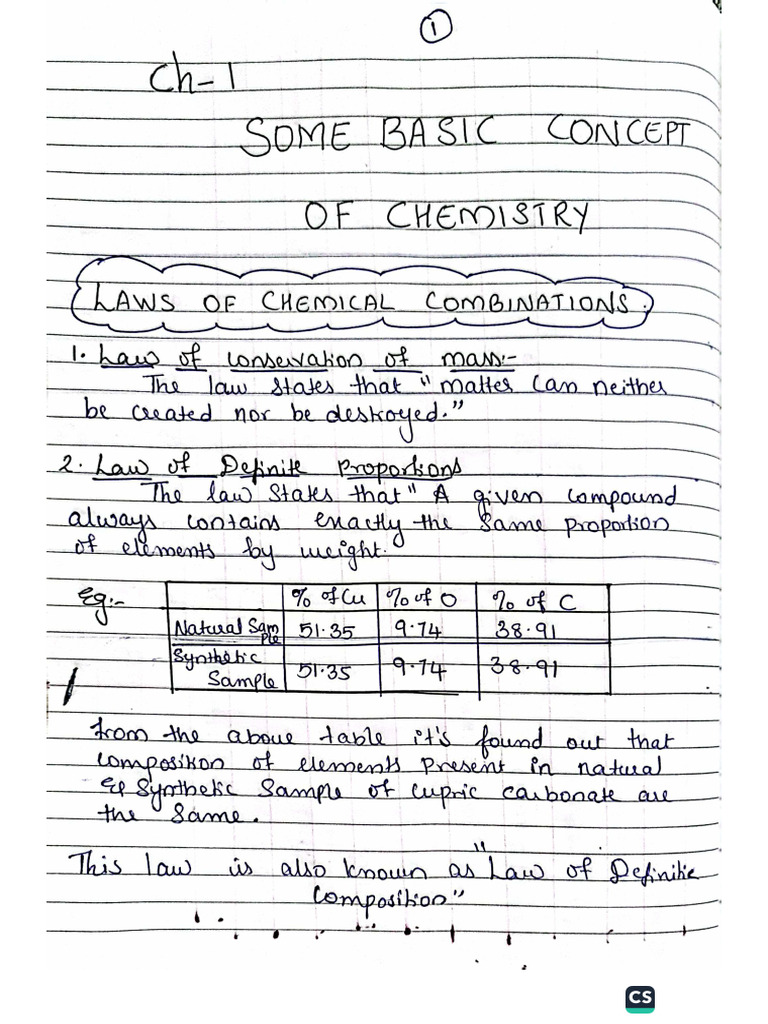 1
Ch-1
SOME BASIC CONCEPT
OF CHEMISTRY
LAWS OF CHEMICAL COMBINATIONS.
1. Law of conservation of mass:-
The law states that "matter can neither
be created nor be destroyed."
2. Law of Definite Proportions
The law states that " A given compound
always contains exactly the same proportion
of elements by weight.
Eg:-
% of Cu % of O % of C
Natural Sample 51.35 9.74 38.91
Synthetic
Sample 51.35 9.74 38.91
from the above table it's found out that
composition of elements present in natural
& Synthetic Sample of cupric carbonate are
the same.
This law is also known as "Law of Definite
Composition"
CS